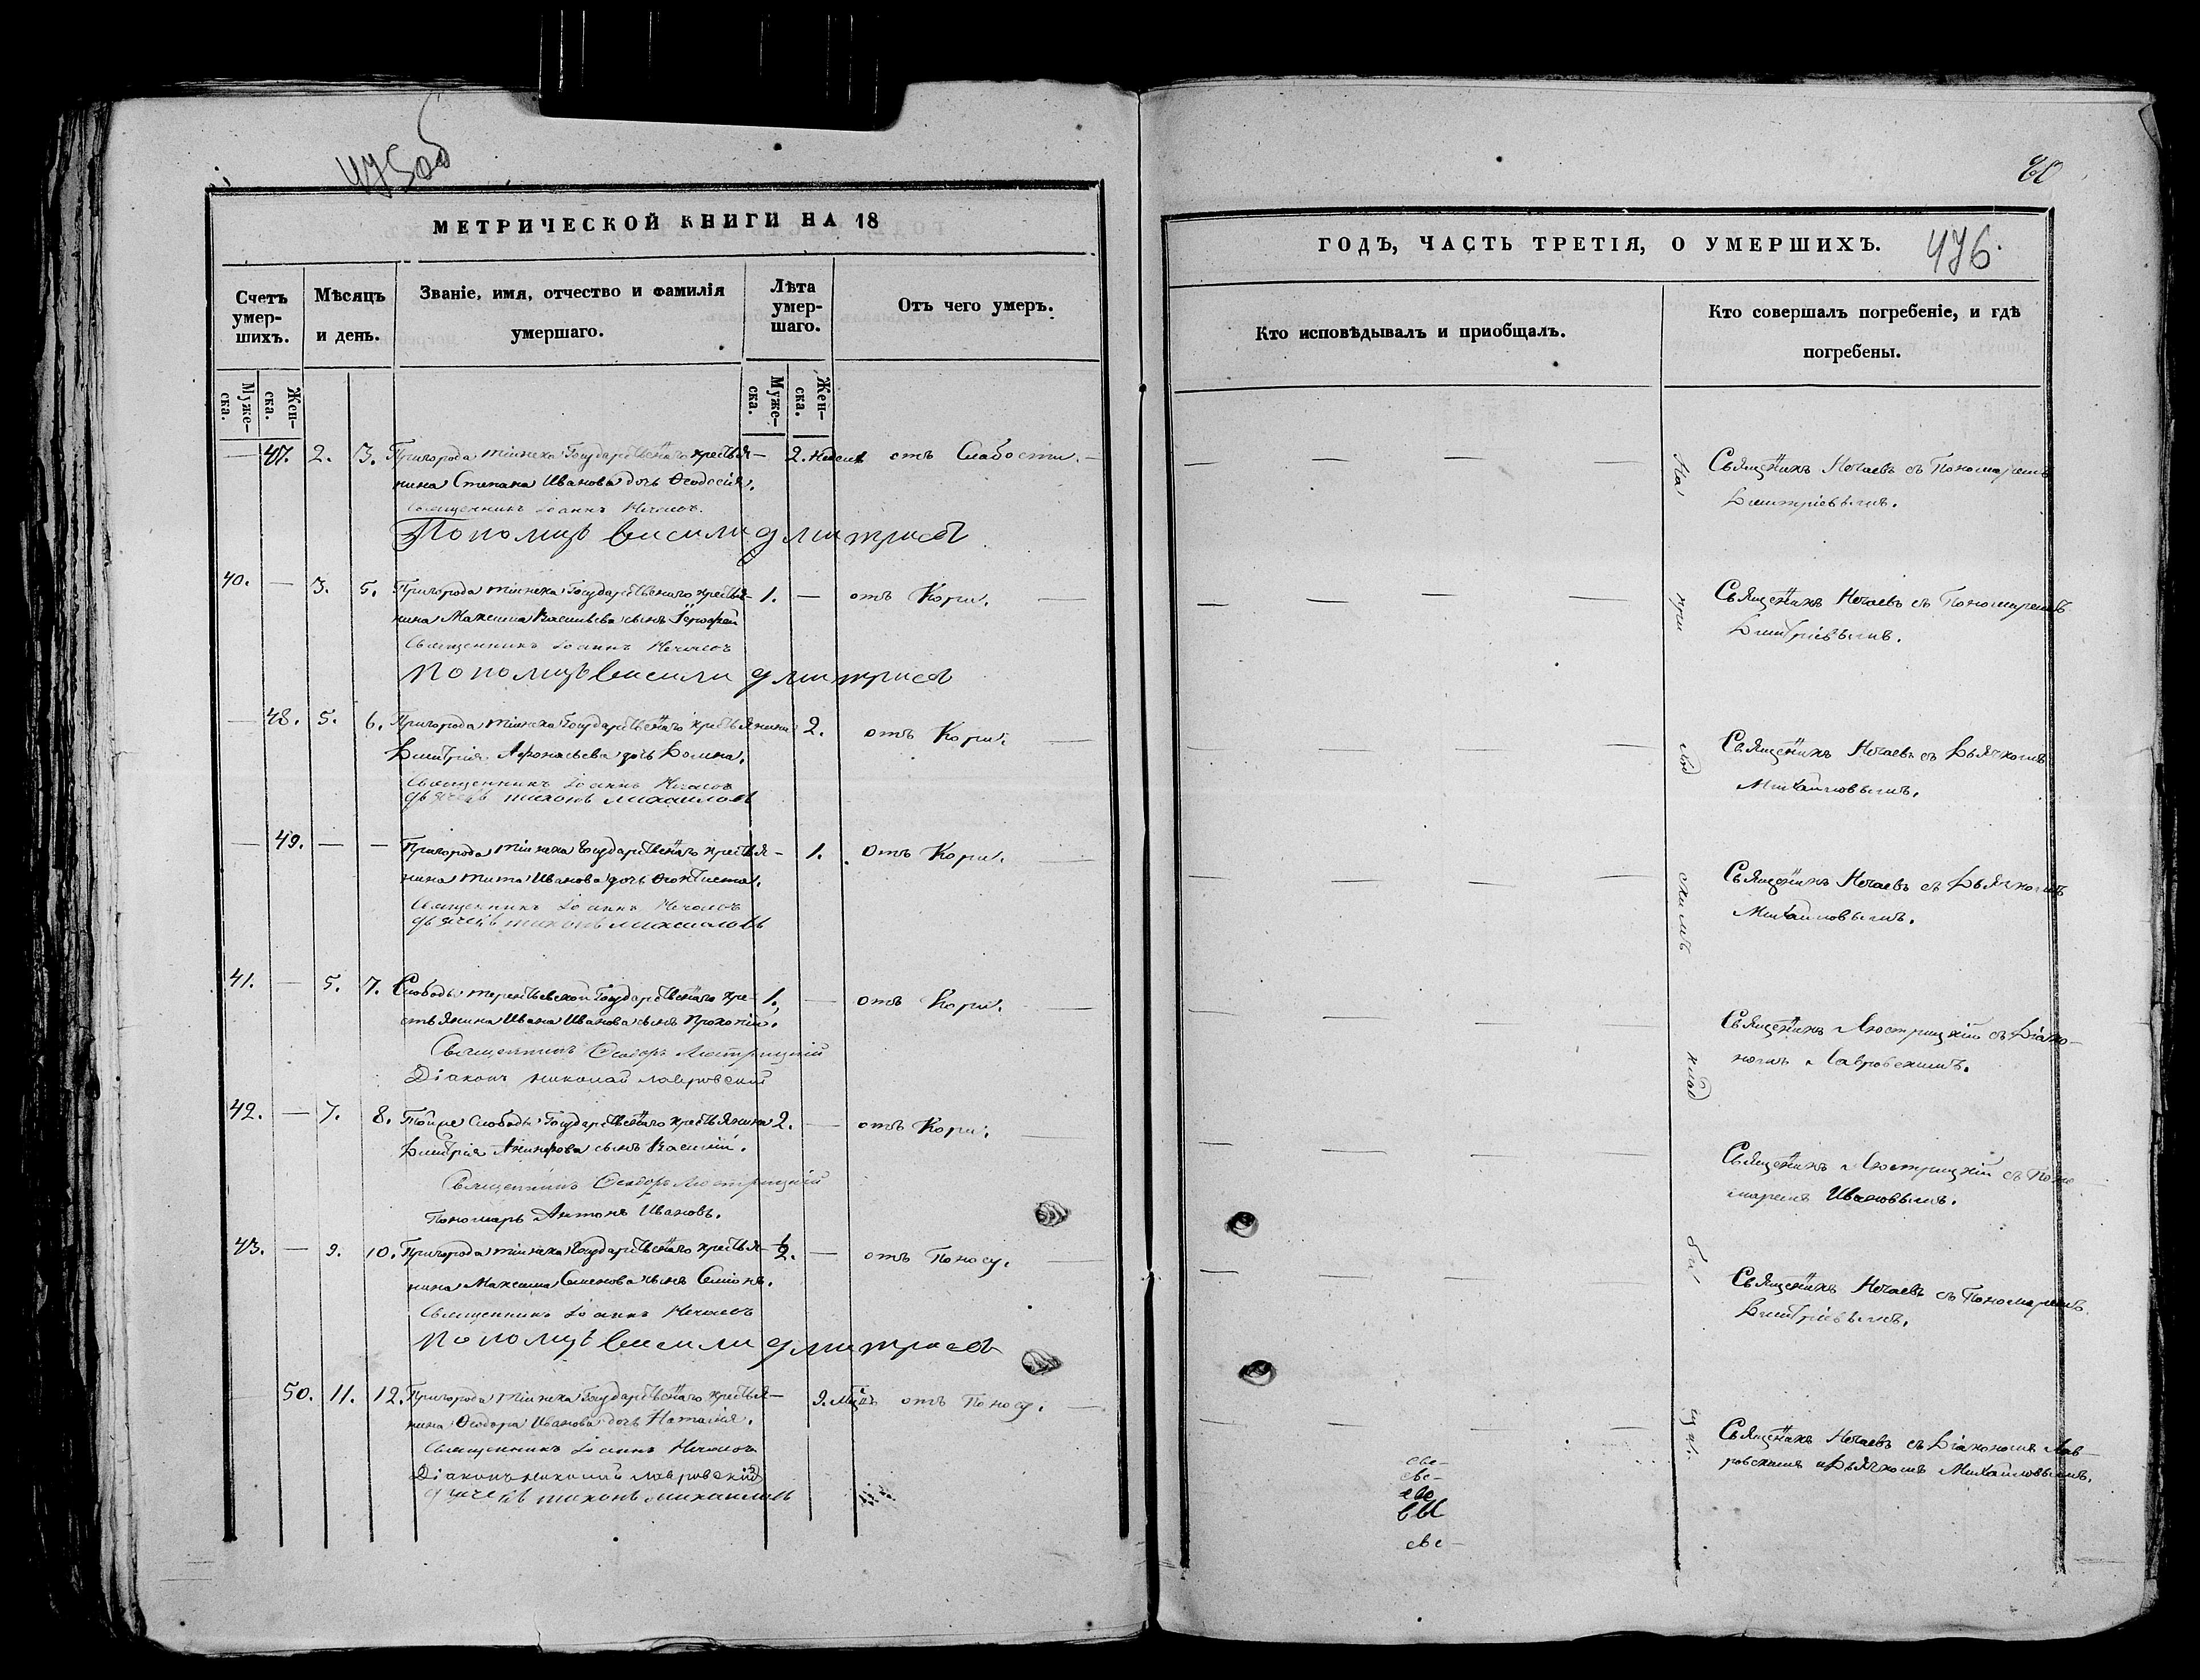 475об
МЕТРИЧЕСКОЙ КНИГИ НА 18
Счетъ умер-шихъ.
Мѣсяцъ и день.
Званіе, имя, отчество и фамилія умершаго.
Лѣта умер-шаго.
Отъ чего умеръ.
Муже-ска.
Жен-ска.
Муже-ска.
Жен-ска.
— 47. 2. 3. Пригорода Тіинска Государственаго крестья- 2. недель отъ Слабости. —
нина Степана Иванова дочь Ѳеодосія.
Священникъ Іоаннъ Нечаевъ
Пономарь Василий Дмитриевъ
40. — 3. 5. Пригорода Тіинска Государственаго крестья- 1. — отъ Кори. —
нина Максима Васильева сынъ Іерофей
Священникъ Іоаннъ Нечаевъ
Пономарь Василий Дмитриевъ
— 48. 5. 6. Пригорода Тіинска Государственаго крестьянина 2. отъ Кори. —
Дмитрія Афонасьева дочь Домна.
Священникъ Іоаннъ Нечаевъ
Дьячекъ Тихонъ Михаиловъ
— 49. — — Пригорода Тіинска Государственаго крестья- 1. отъ Кори. —
нина Тита Иванова дочь Ѳеоктиста.
Священникъ Іоаннъ Нечаевъ
Дьячекъ Тихонъ Михаиловъ
41. — 5. 7. Слободы Терентьевской Государственаго кре- 1. — отъ Кори. —
стьянина Ивана Иванова сынъ Прокопій.
Священникъ Ѳеодоръ Люстрицкій
Діаконъ Николай Лавровский
42. — 7. 8. Тойже Слободы Государственаго крестьянина 2. — отъ Кори. —
Дмитрія Анинфова сынъ Василій.
Священникъ Ѳеодоръ Люстрицкій
Пономарь Антонъ Ивановъ.
43. — 9. 10. Пригорода Тіинска Государственаго крестья- ½. — отъ Поносу. —
нина Максима Семенова сынъ Семіонъ.
Священникъ Іоаннъ Нечаевъ
Пономарь Василий Дмитриевъ
— 50. 11. 12. Пригорода Тіинска Государственаго крестья- 9. Мцъ отъ Поносу. —
нина Ѳеодора Иванова дочь Наталія.
Священникъ Іоаннъ Нечаевъ
Діаконъ Николай Лавровский
Дьячекъ Тихонъ Михаиловъ
ГОДЪ, ЧАСТЬ ТРЕТІЯ, О УМЕРШИХЪ.
476.
Кто исповѣдывалъ и приобщалъ.
Кто совершалъ погребеніе, и гдѣ погребены.
На
при
клад
Священикъ Нечаевъ съ Пономаремъ
Дмитріевымъ.
Священикъ Нечаевъ съ Пономаремъ
Дмитріевымъ.
Священикъ Нечаевъ съ Дьячкомъ
Михайловымъ.
Священикъ Нечаевъ съ Дьячкомъ
Михайловымъ.
Священикъ Люстрицкій съ Діако-
номъ Лавровскимъ.
Священикъ Люстрицкій съ Поно-
маремъ Ивановымъ.
Священикъ Нечаевъ съ Пономаремъ
Дмитріевымъ.
Священикъ Нечаевъ съ Діакономъ Лав-
ровскимъ и Дьячкомъ Михайловымъ.